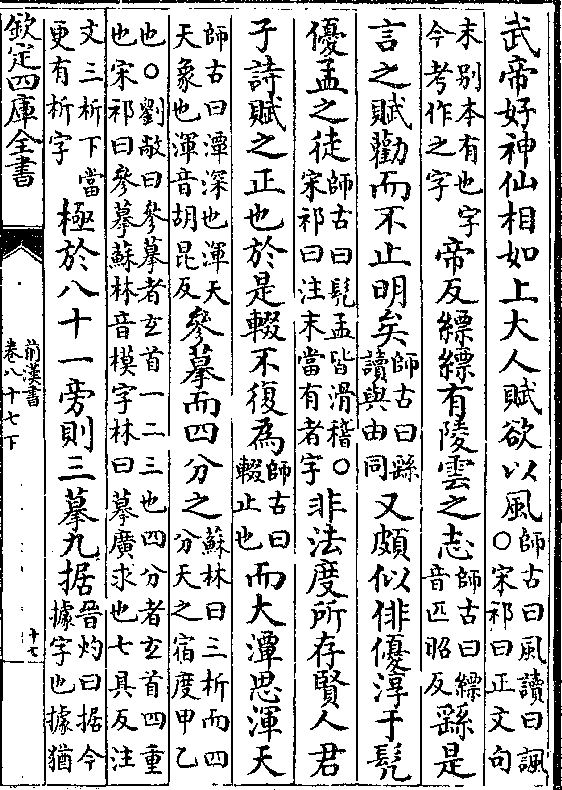 武帝好神仙相如上大人賦欲以風師古曰風讀曰諷○宋祁曰正文句
末别本有也字今考作之字帝反縹縹有陵雲之志師古曰縹音匹昭反繇是
言之賦勸而不止明矣師古曰繇讀與由同又頗似俳優淳于髡
優孟之徒師古曰髡孟皆滑稽○宋祁曰注末當有者字非法度所存賢人君
子詩賦之正也於是輟不復為師古曰輟止也而大潭思渾天
師古曰潭深也渾天天象也渾音胡昆反參摹而四分之蘇林曰三析而四分天之宿度甲乙
也○劉敞曰參摹者玄首一二三也四分者玄首四重也宋祁曰參摹蘇林音模字林曰摹廣求也七具反注
文三析下當更有析字極於八十一旁則三摹九据晉灼曰据今據字也據猶
欽定四庫全書
前漢書
卷八十七下
十七